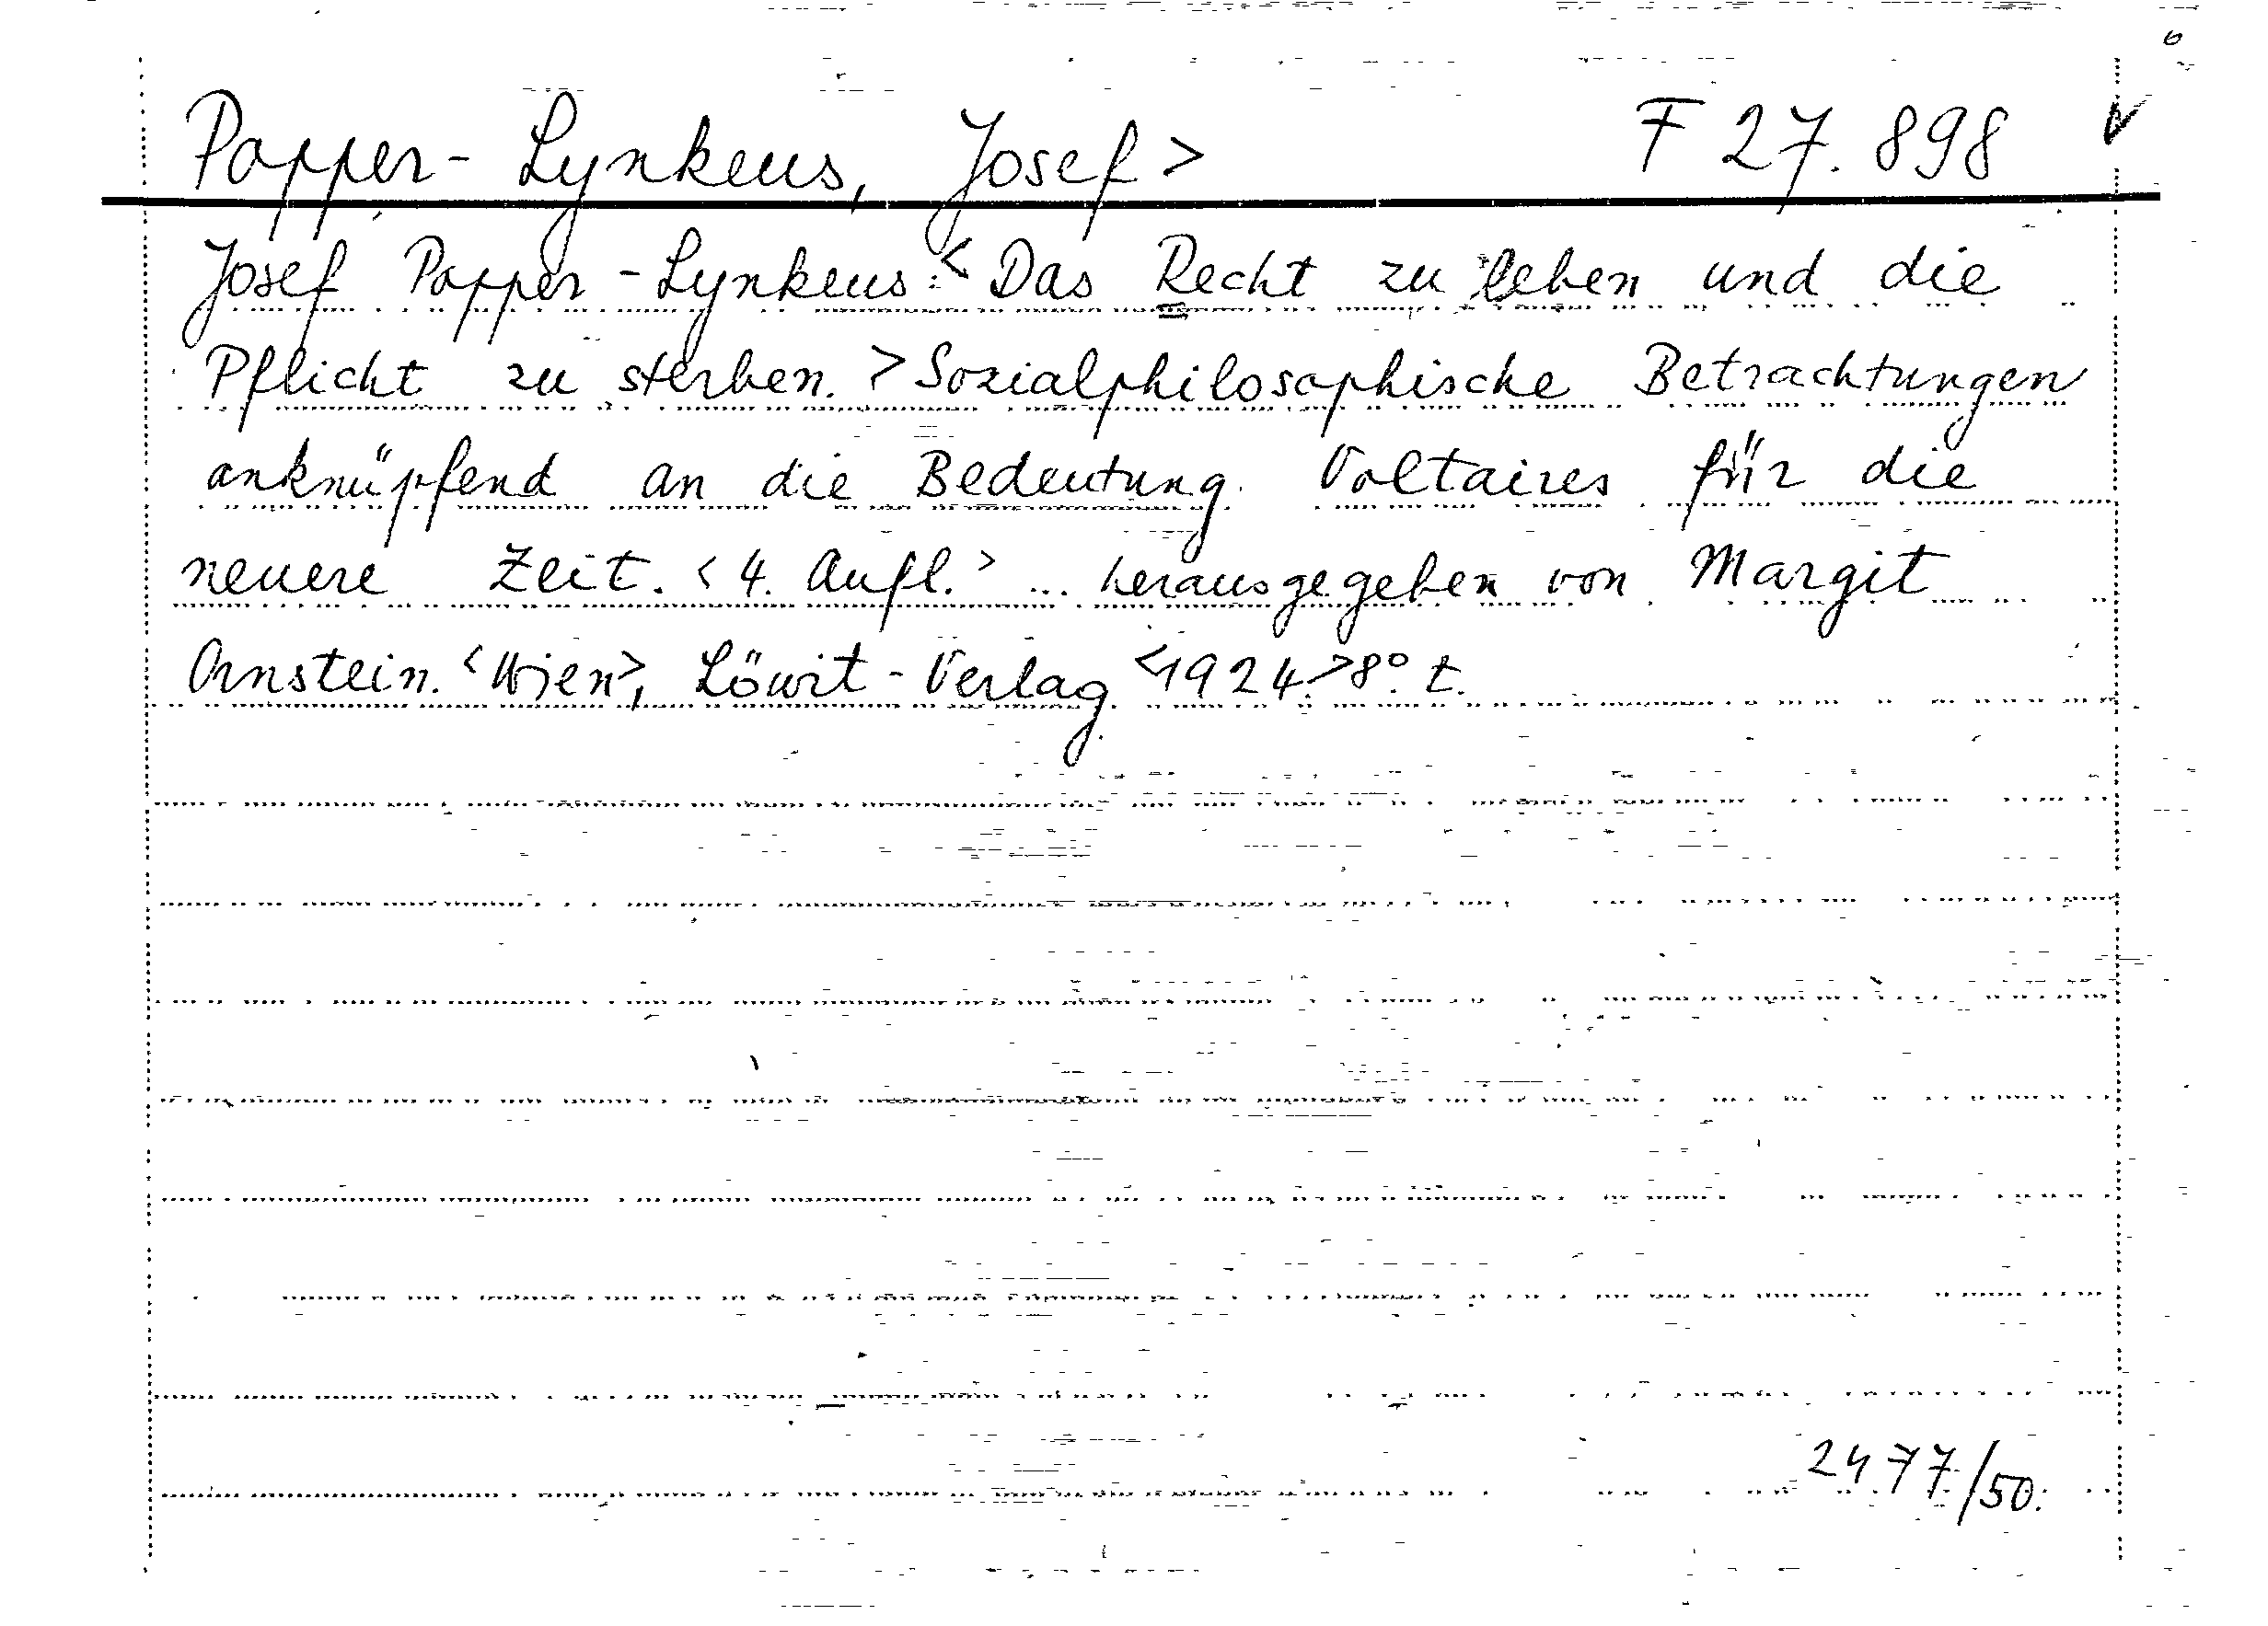 Popper-Lynkeus, Josef > F 27.898
Josef Popper-Lynkeus: < Das Recht zu leben und die
Pflicht zu sterben. > Sozialphilosophische Betrachtungen
anknüpfend an die Bedeutung Voltaires für die
neuere Zeit. < 4. Aufl. > ... herausgegeben von Margit
Ornstein. <Wien>, Löwit-Verlag <1924.> 8°. t.
2477/50.